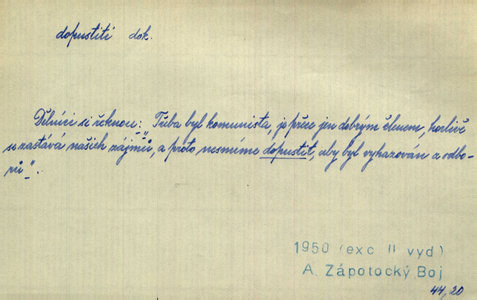 dopustiti dok.
Dělníci si řeknou: „Třeba byl komunista, je přece jen dobrým členem, horlivě
zastává našich zájmů, a proto nesmíme dopustit, aby byl vyhazován z odbo-
rů“.
1950 (exc II vyd)
A. Zápotocký Boj
44,20